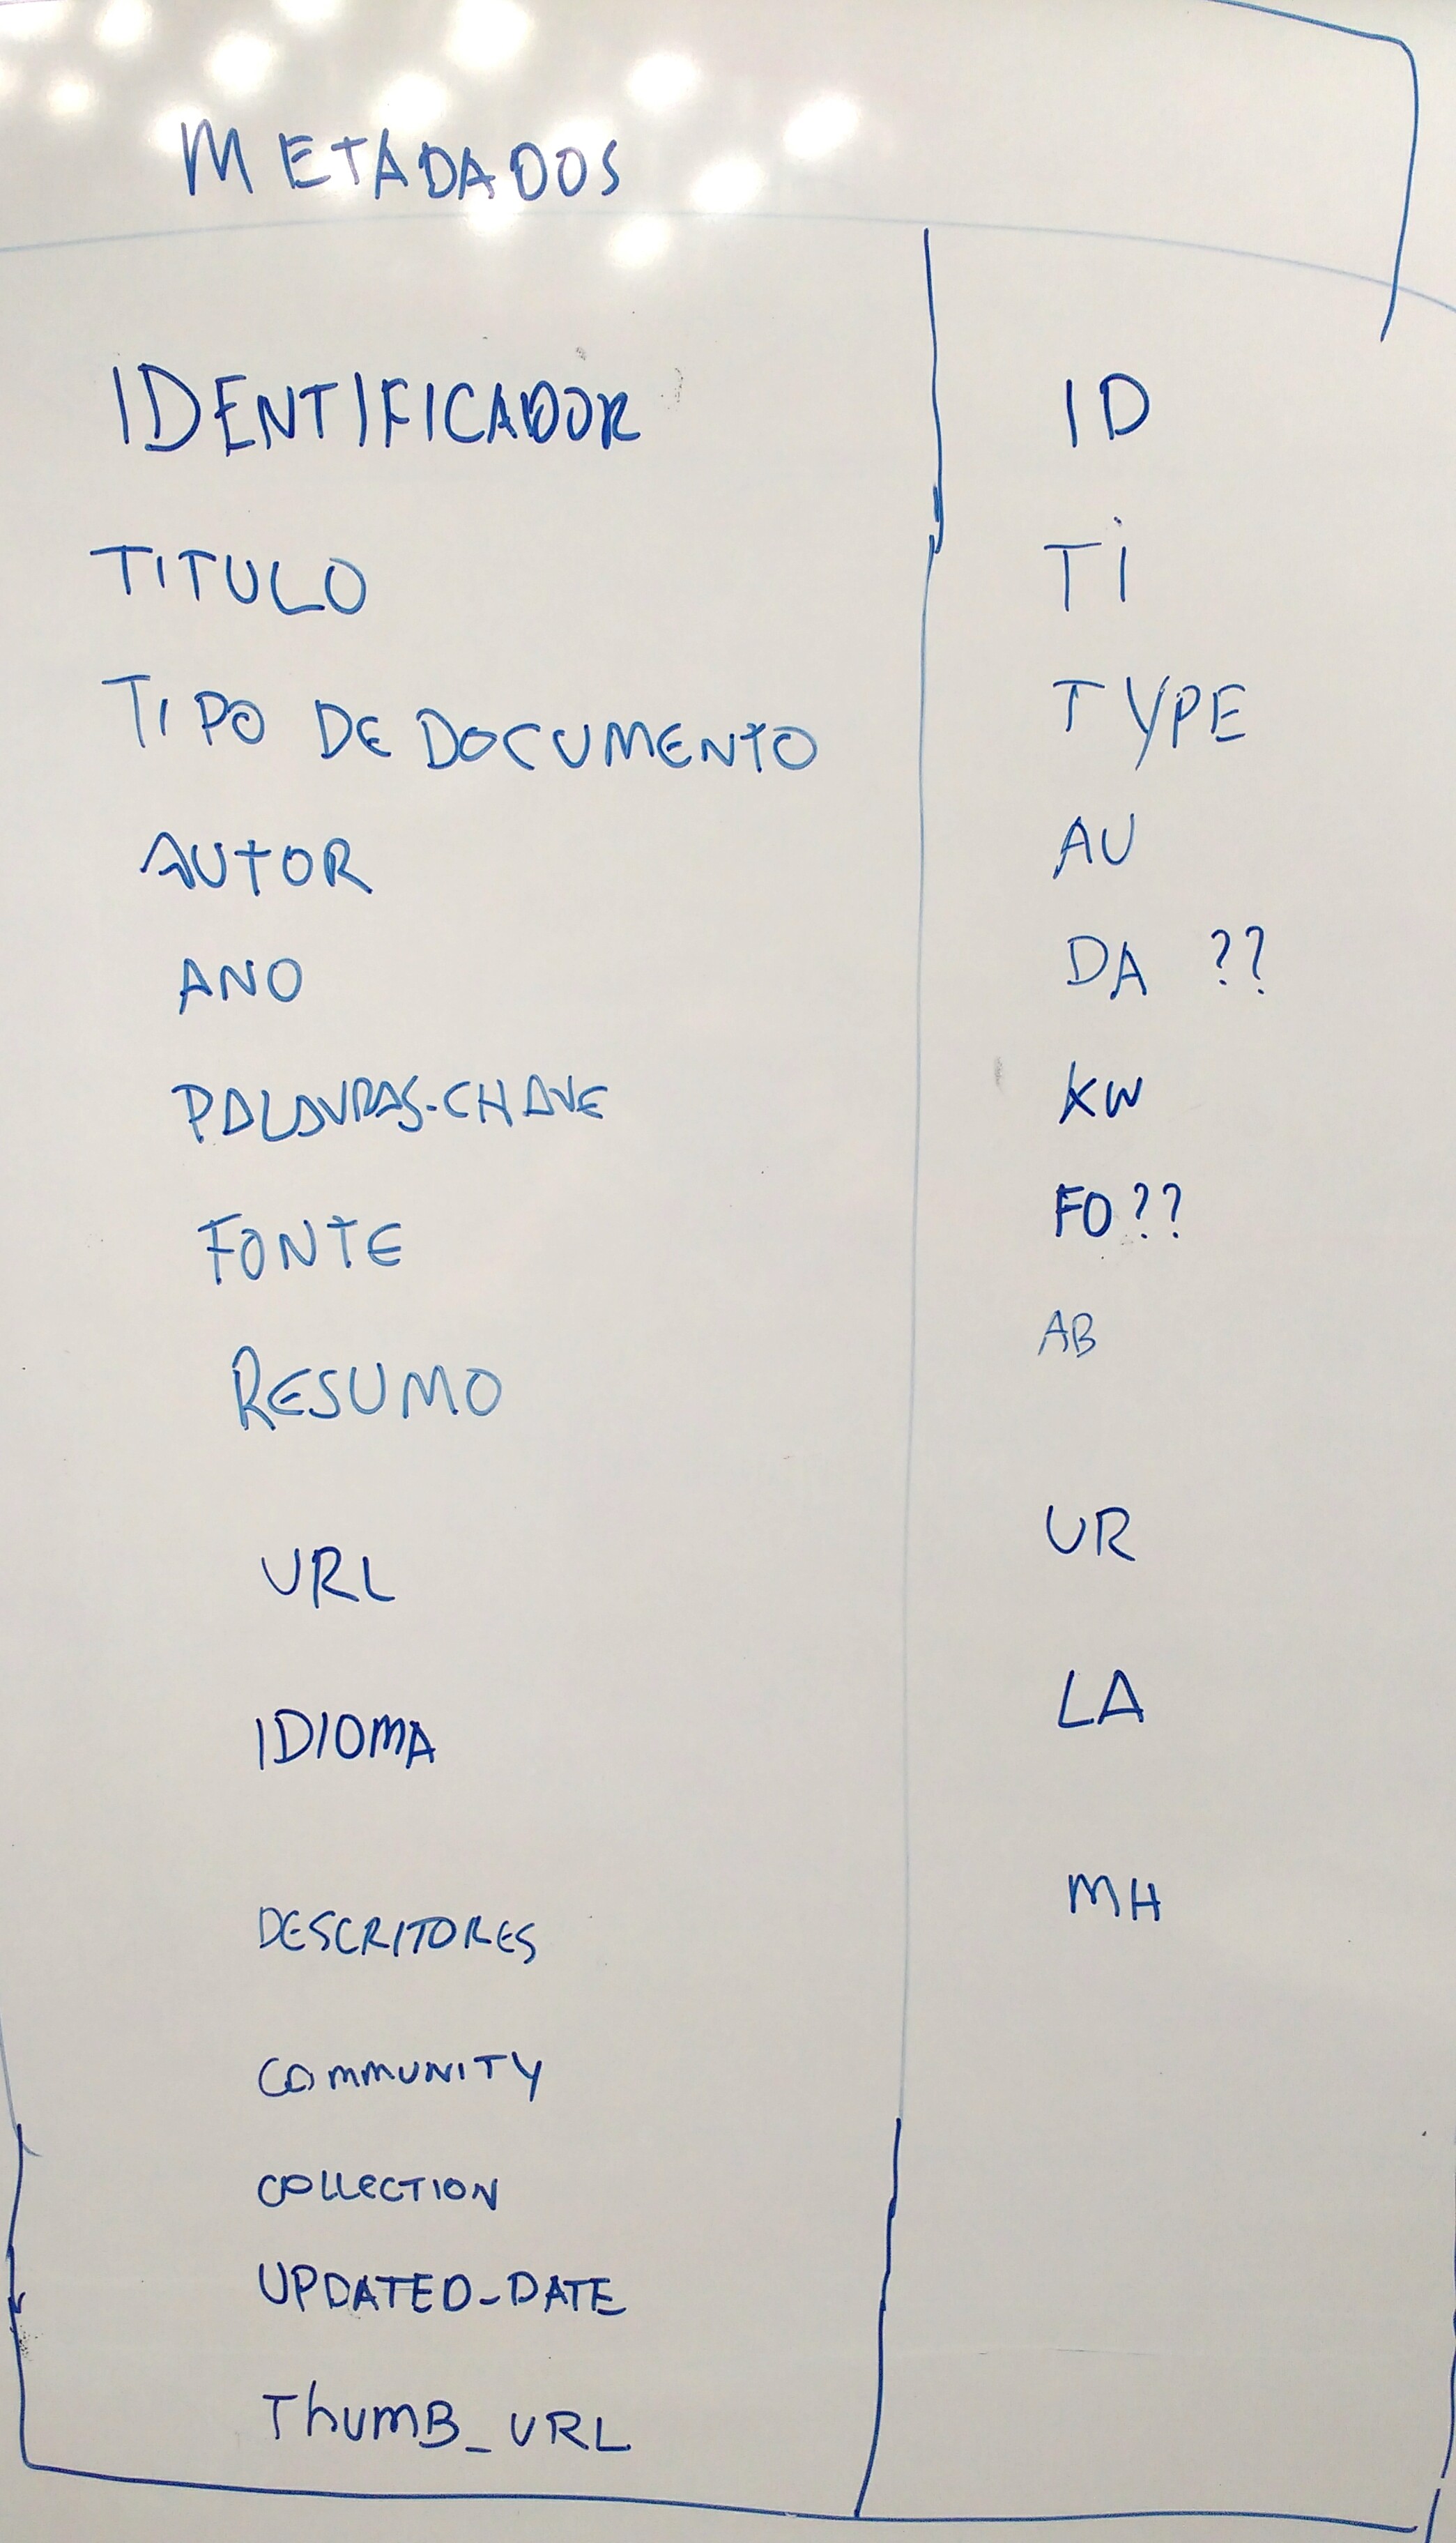 METADADOS
IDENTIFICADOR ID
TITULO Ti
TIPO DE DOCUMENTO TYPE
AUTOR AU
ANO DA ??
PALAVRAS-CHAVE KW
FONTE FO??
RESUMO AB
URL UR
IDIOMA LA
DESCRITORES MH
COMMUNITY
COLLECTION
UPDATED_DATE
ThumB_URL